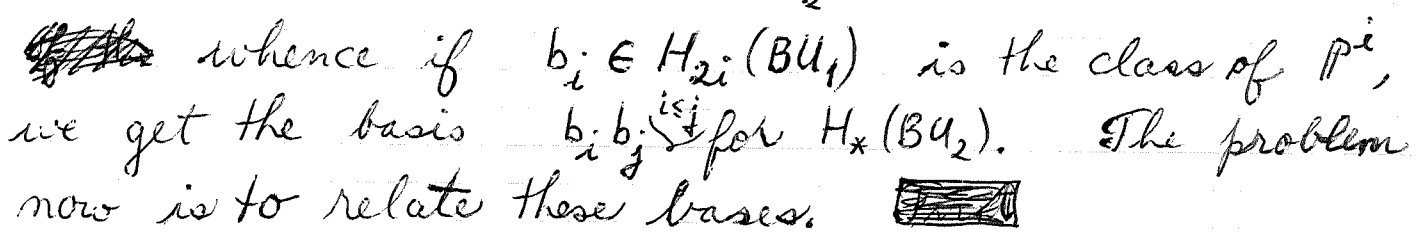 whence if b_i ∈ H_{2i}(BU_1) is the class of P^i,
we get the basis b_i b_j i≤j for H_*(BU_2). The problem
now is to relate these bases.